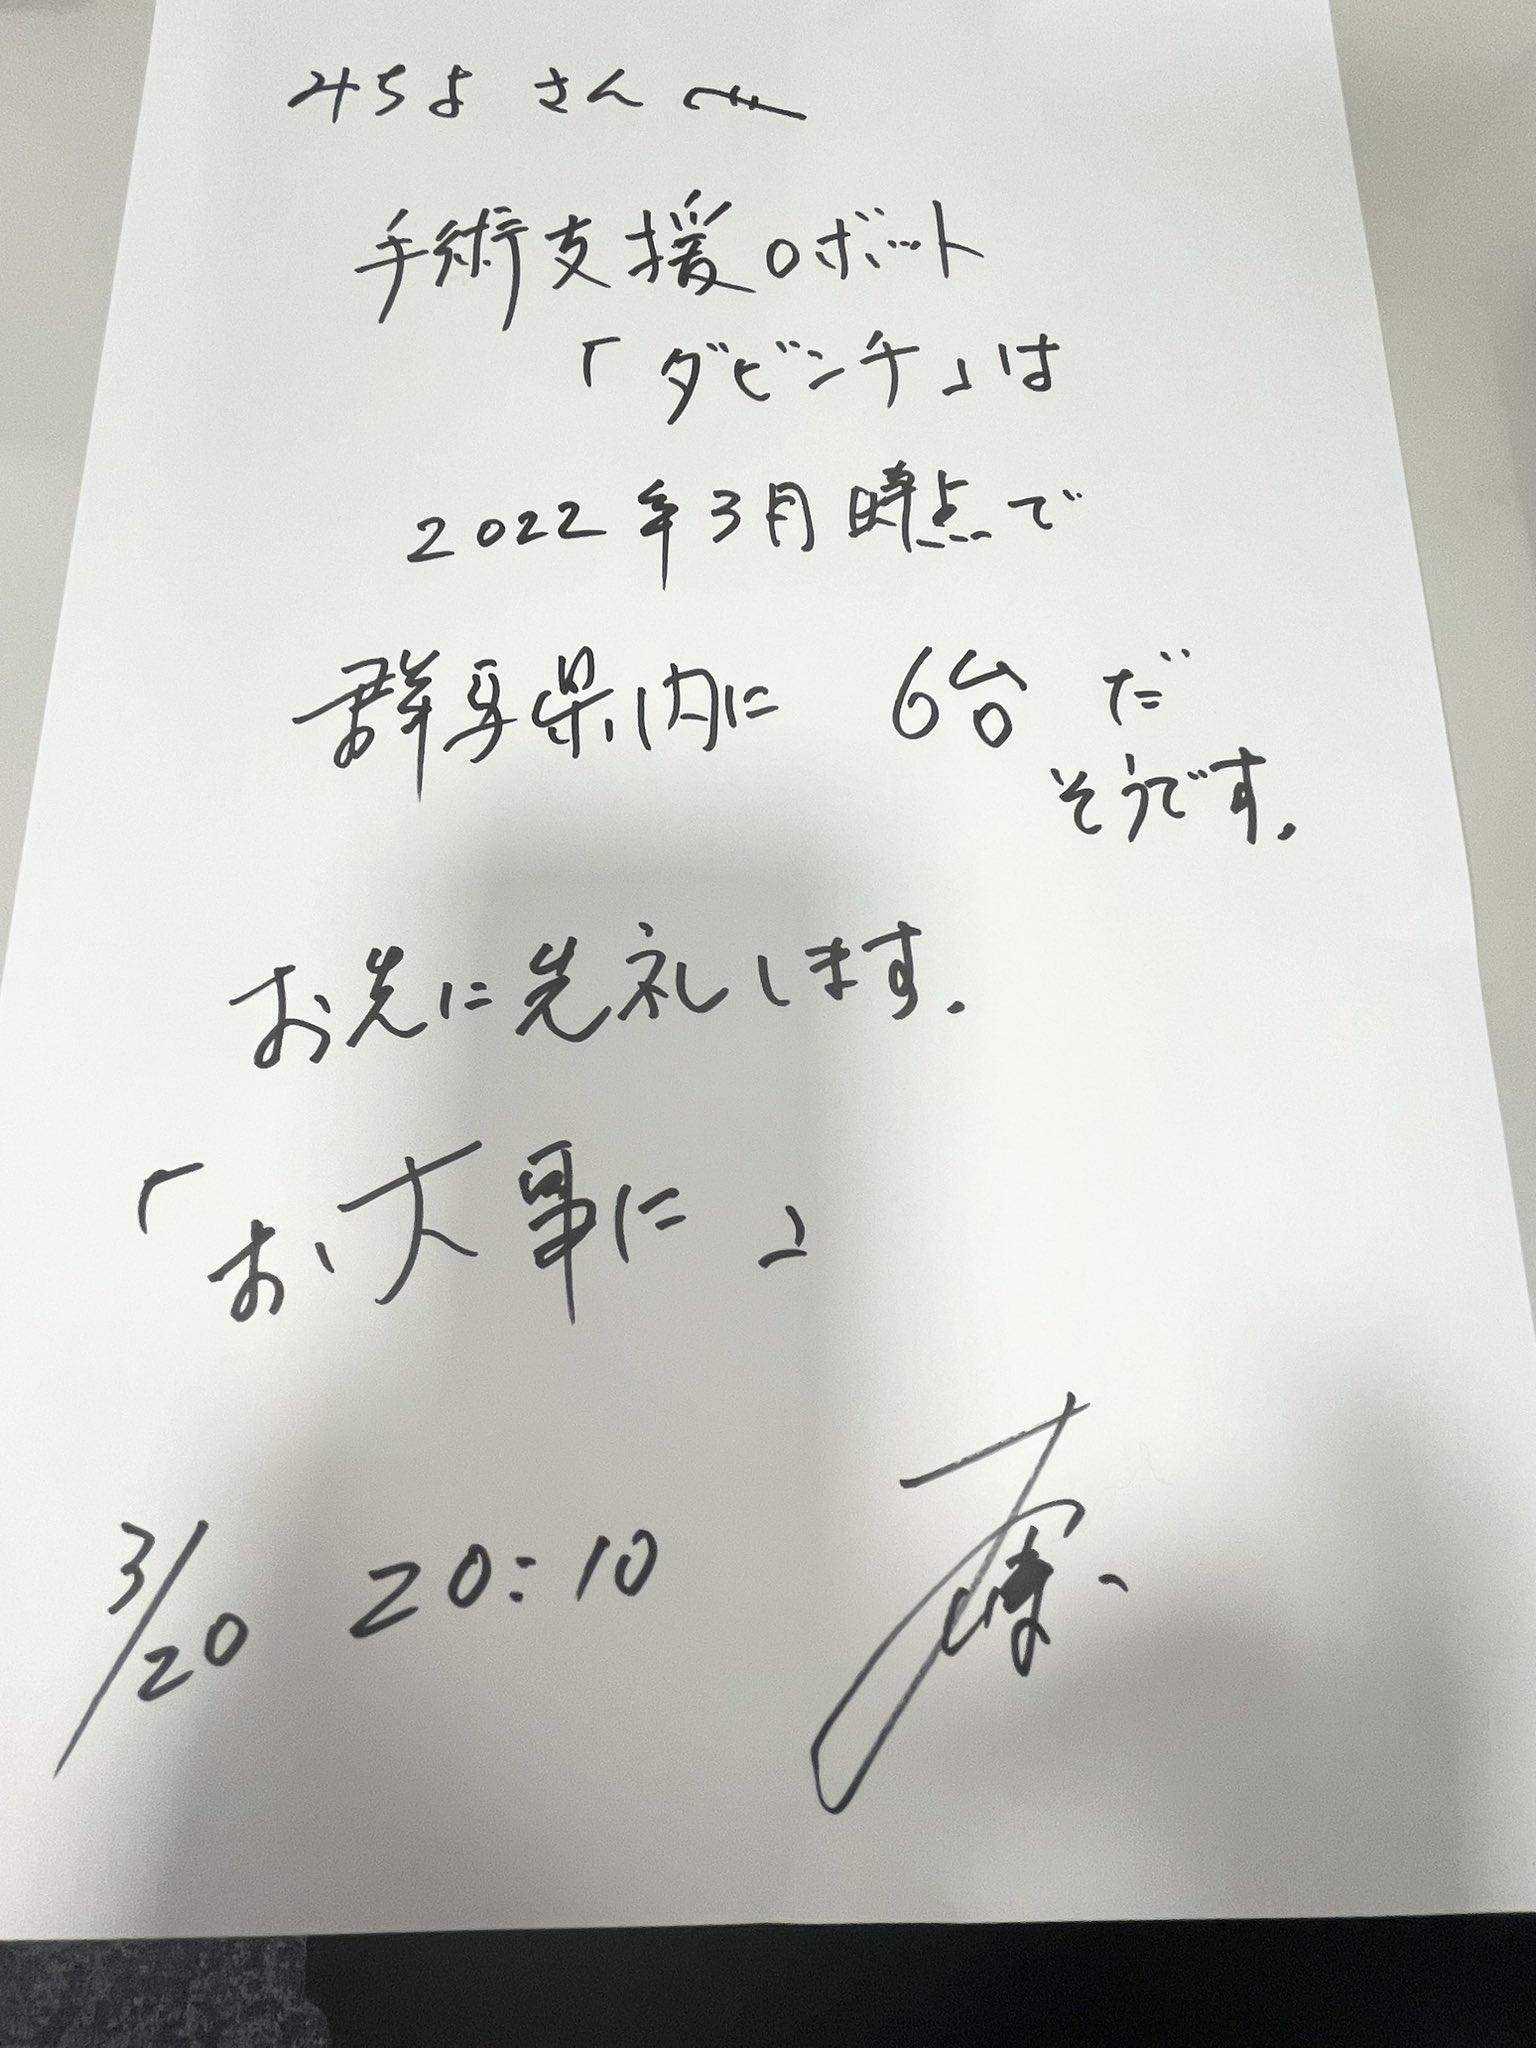 みちよさんへ
手術支援ロボット
「ダビンチ」は
2022年3月時点で
群馬県内に 6台だ
そうです.
お先に失礼します.
「お大事に」
3/20 20:10